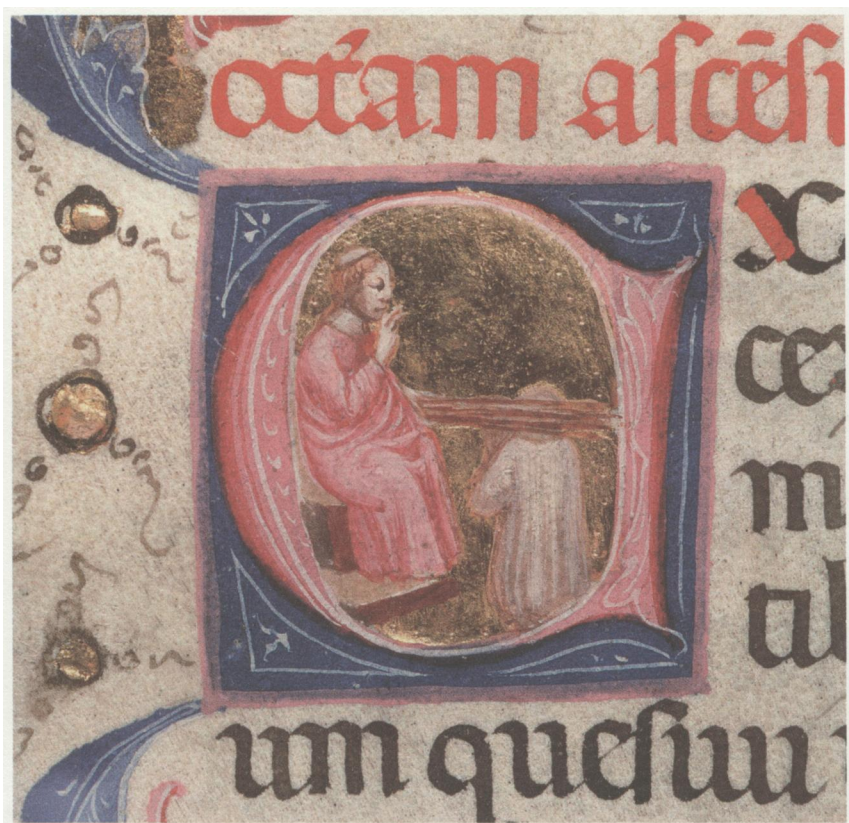 oct̄am ascēsi
EX
ce
m
ti
um quesiui